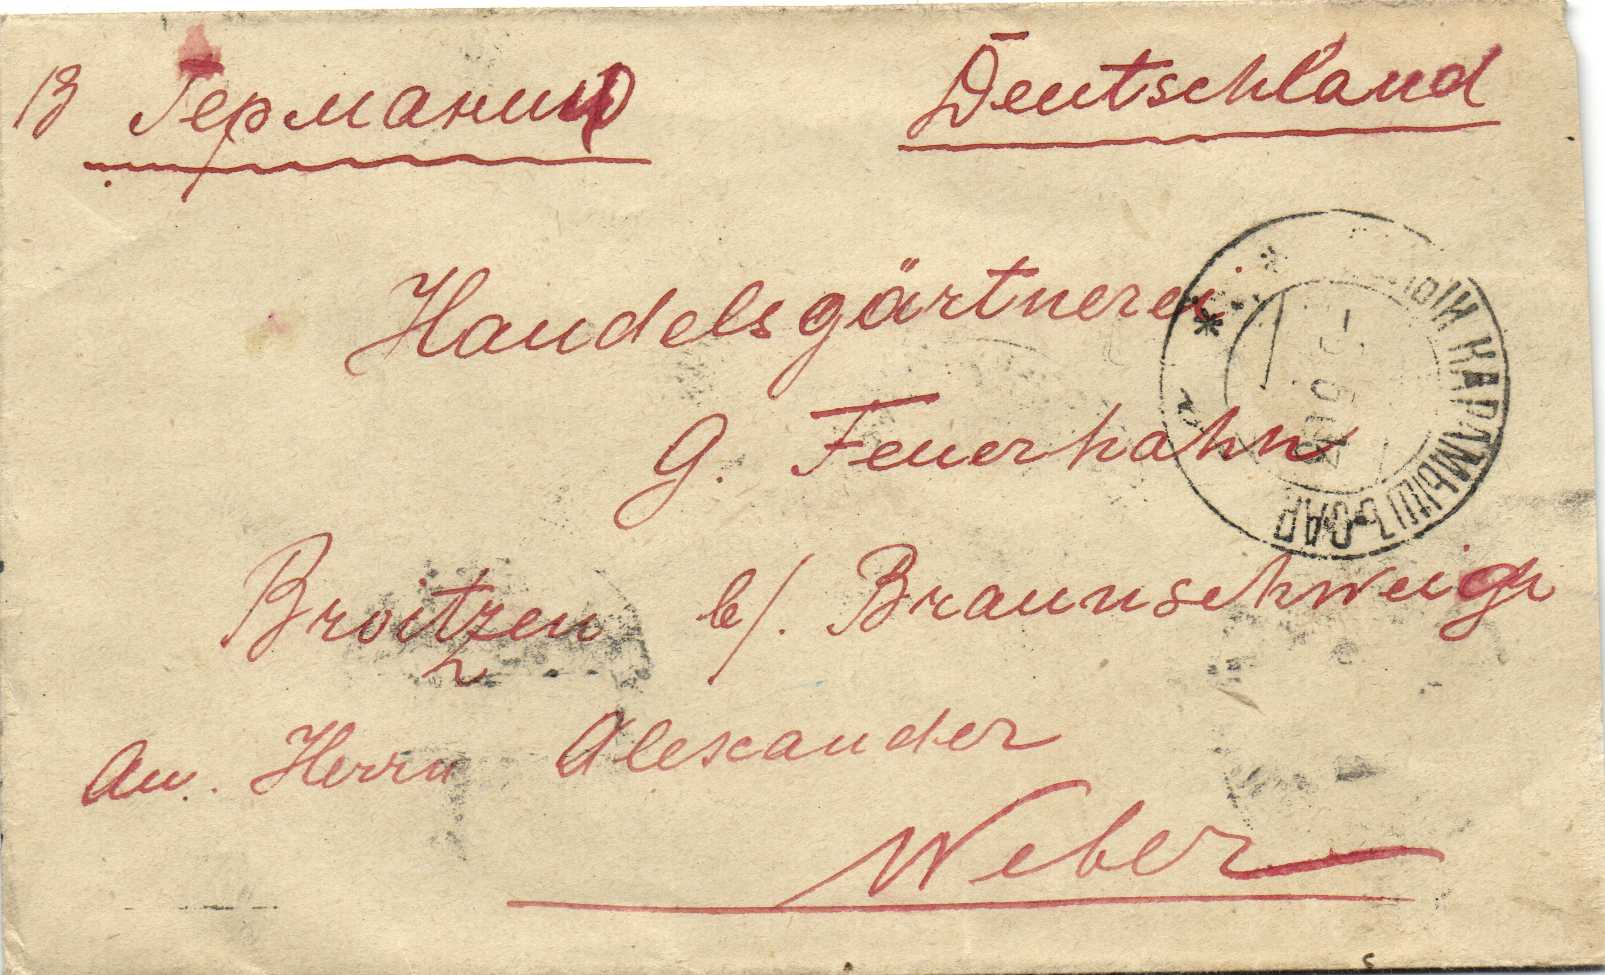 В Германию
Deutschland
Handelsgärtnerei
G. Feuerhahn
Broitzen b/. Braunschweig
An. Herrn Alexander
Weber
КАРАМЫШЪ-САР